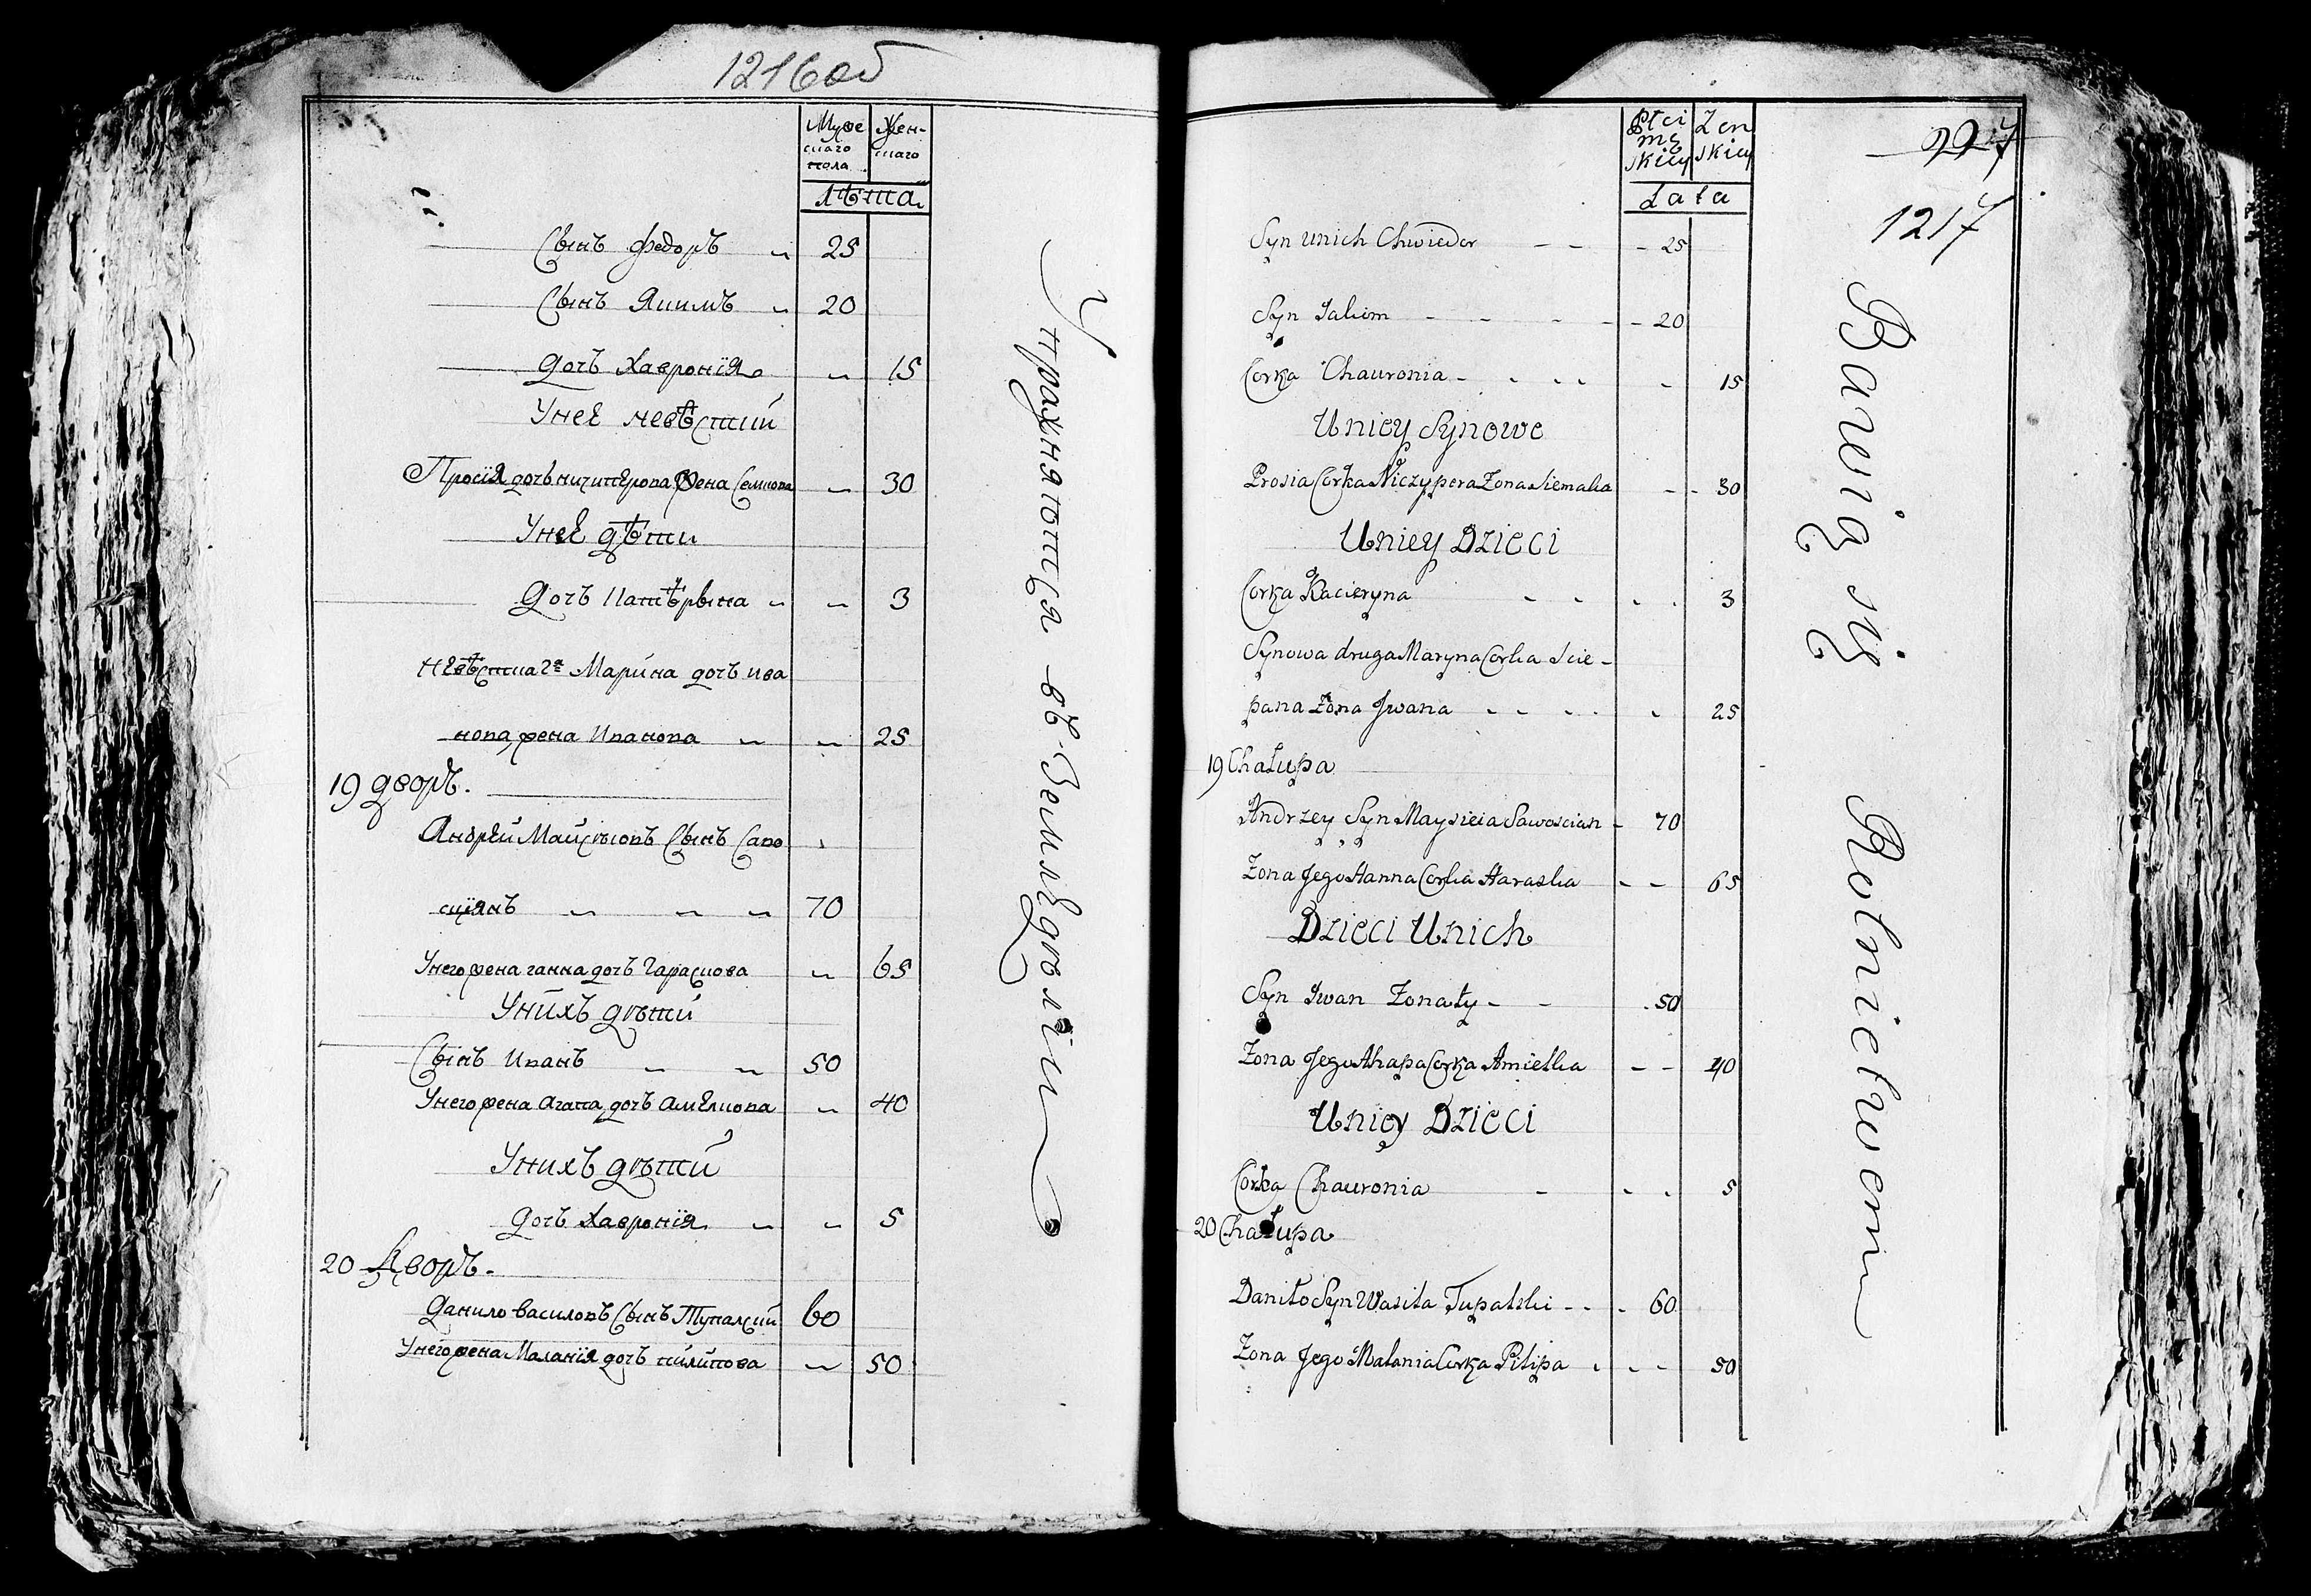 1216об
Муже Жен-
скаго скаго
пола
лѣта
Сынъ Федоръ 25
Сынъ Якимъ 20
дочь Хавронія 15
У неё невѣстки
Просія дочь ничиперова жена Семкова 30
У неё дѣти
дочь Катѣрына 3
невѣстка 2я Марина дочь ива
нова, жена Иванова 25
19 дворъ.
Андрей Майсѣювъ Сынъ Саво
сціянъ 70
У него жена ганна дочь Гараскова 65
У нихъ дѣти
Сынъ Иванъ 50
У него жена агапа дочь амелкова 40
У нихъ дѣти
дочь Хавронія 5
20 Дворъ.
данило василовъ Сынъ Тупальскій 60
У него жена Маланія дочь пилипова 50
Упражняются въ Земледѣліи
Płci Zen
mę skiey
skiey
Lata
997
1217
Syn unich Chwiedor 25
Syn Jakim 20
Corka Chauronia 15
Uniey Synowe
Prosia Corka Niczypera Zona Siemaka 30
Uniey Dzieci
Corka Kacieryna 3
Synowa druga Maryna Corka Scie-
pana Zona Jwana 25
19 Chałupa
Andrzey Syn Maysieia Sawoscian 70
Zona Jego Hanna Corka Haraska 65
Dzieci Unich
Syn Iwan Zonaty 50
Zona Jego Ahapa Corka Amielka 40
Uniey Dzieci
Corka Chauronia 5
20 Chałupa
Daniło Syn Wasila Tupalski 60
Zona Jego Małania Corka Pilipa 50
Bawią się Rolnictwem